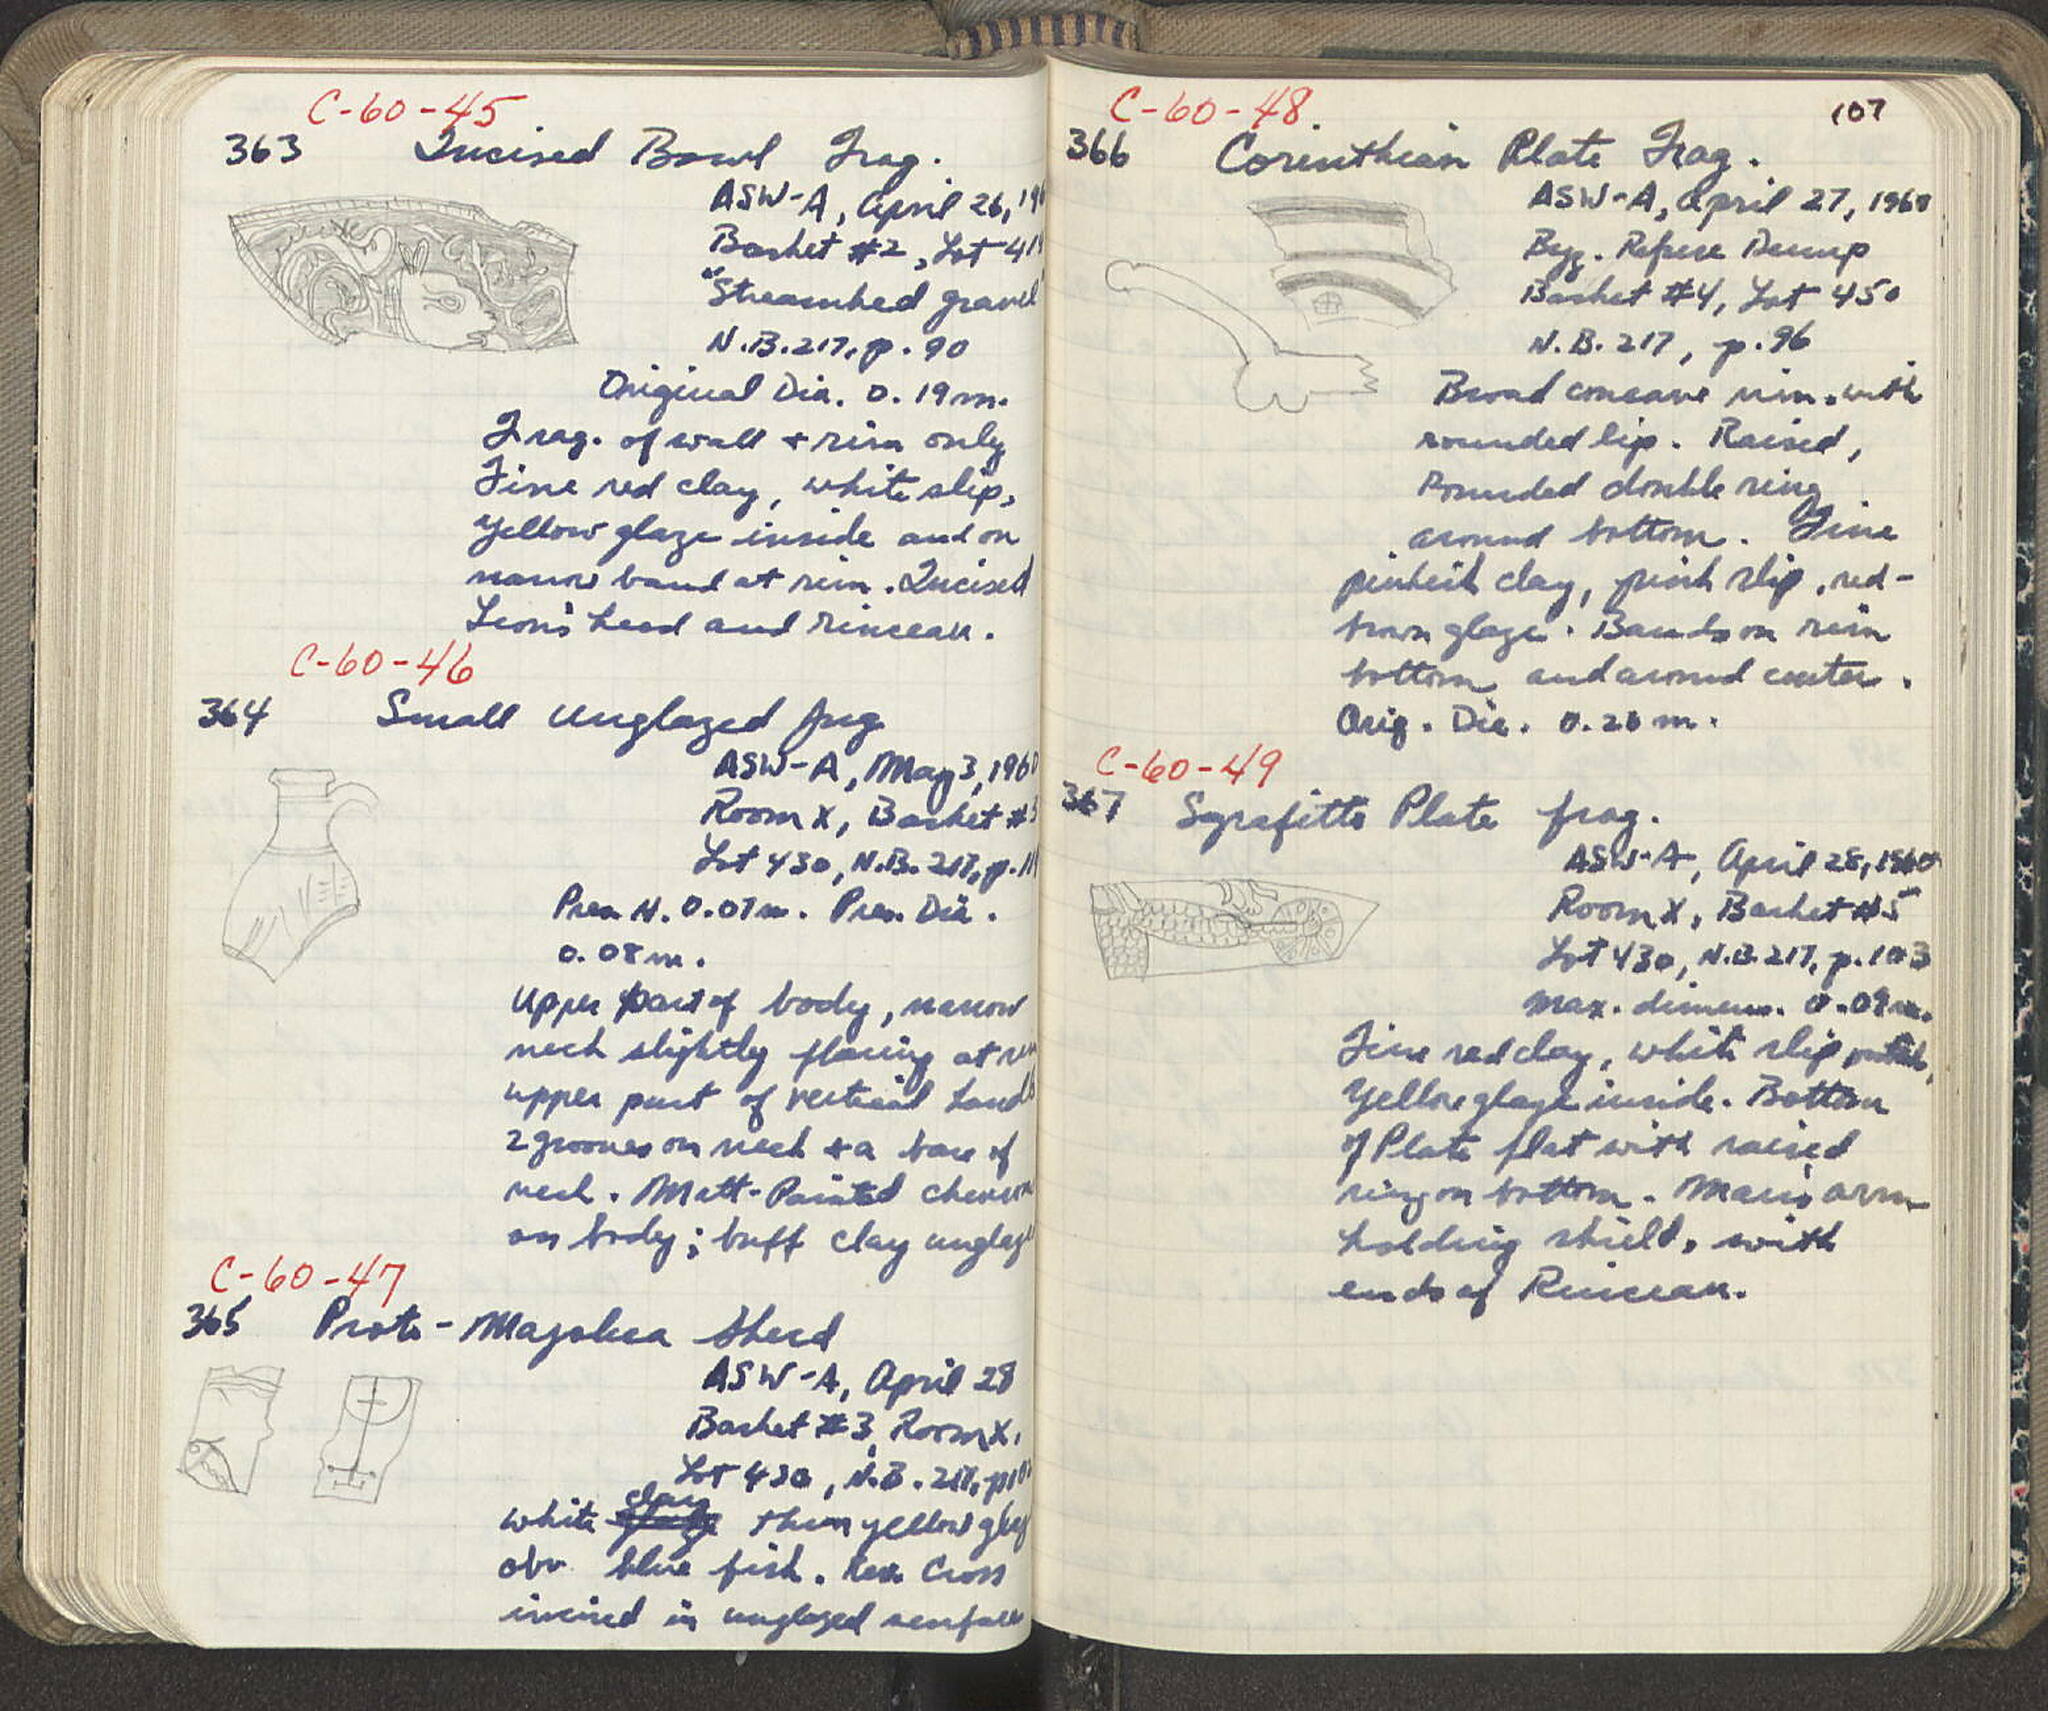 C-60-45
363 Incised Bowl Frag.
ASW-A, April 26, 196
Basket #2, Lot 41
"Streambed gravel"
N.B. 217, p. 90
Original Dia. 0.19m.
Frag. of wall + rim only
Fine red clay, white slip,
Yellow glaze inside and on
narrow band at rim. Incised
Lion's head and rinceau.
C-60-46
364 Small Unglazed Jug
ASW-A, May 3, 1960
Room X, Basket #
Lot 430, N.B. 217, p. 11
Pres. H. 0.07m. Pres. Dia.
0.08m.
Upper part of body, narrow
neck slightly flaring at
upper part of vertical handle
2 grooves on neck + a base of
neck. Matt-Painted chevron
on body; buff clay unglaz
C-60-47
365 Proto-Majolica Sherd
ASW-A, April 28
Basket #3, Room X,
Lot 430, N.B. 217, p10
clay
White thin yellow glaz
obv blue fish. Rev. Cross
incised in unglazed surface
107
C-60-48
366 Corinthian Plate Frag.
ASW-A, April 27, 1960
Byz. Refuse Dump
Basket #4, Lot 450
N.B. 217, p. 96
Broad concave rim, with
rounded lip. Raised,
rounded double ring
around bottom. Fine
pinkish clay, pink slip, red-
brown glaze. Bands on rim
bottom and around center.
Orig. Dia. 0.20 m.
C-60-49
367 Sgrafitto Plate frag.
ASW-A, April 28, 1960
Room X, Basket #5
Lot 430, N.B. 217, p. 103
Max. dimens. 0.09m.
Fine red clay, white slip
Yellow glaze inside. Bottom
of Plate flat with raised
ring on bottom. Man's arm
holding shield, with
ends of Rinceau.